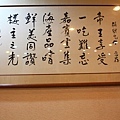 帝王享受
一吃難忘
嘉賓雲集
海產品嚐
鮮美同讚
樓主之光